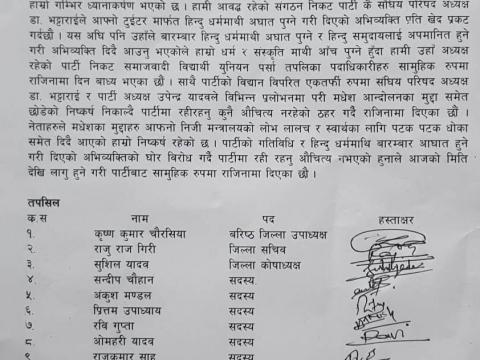 हाम्रो गम्भिर ध्यानाकर्षण भएको छ । हामी आवद्ध रहेको संगठन निकट पार्टी कै संघिय परिषद अध्यक्ष
डा. भट्टराईले आफ्नो टुईटर मार्फत हिन्दु धर्ममाथी अघात पुग्ने गरी दिएको अभिव्यक्ति एति खेद प्रकट
गर्दछौं । यस अघि पनि उहाँले बारम्बार हिन्दु धर्ममाथी अघात पुग्ने र हिन्दु समुदायलाई अपमानित हुने
गरी अभिव्यक्ति दिदै आउनु भएकोले हाम्रो धर्म र संस्कृति माथी आँच पुग्ने हुँदा हामी उहाँ अध्यक्ष
रहेको पार्टी निकट समाजवादी विद्यार्थी युनियन पर्सा तपलिका पदाधिकारीहरु सामुहिक रुपमा
राजिनामा दिन बाध्य भएका छौं । साथै पार्टीको विद्यान विपरित एकतर्फी रुपमा संघिय परिषद अध्यक्ष
डा. भट्टराई र पार्टी अध्यक्ष उपेन्द्र यादवले विभिन्न प्रलोभनमा परी मधेश आन्दोलनका मुद्दा समेत
छोडेको निष्कर्ष निकाल्दै पार्टीमा रहीरहनु कुनै औचित्य नरहेको ठहर गर्दै राजिनामा दिएका छौं ।
नेताहरुले मधेशका मुद्दाहरु आफनो निजी मन्त्रालयको लोभ लालच र स्वार्थका लागि पटक पटक धोका
समेत दिदै आएको हाम्रो निष्कर्ष रहेको छ । पार्टीको गतिविधि र हिन्दु धर्ममाथि बारम्बार आघात हुने
गरी दिएको अभिव्यक्तिको घोर विरोध गर्दै पार्टीमा रही रहनु औचित्य नभएको हुनाले आजको मिति
देखि लागु हुने गरी पार्टीबाट सामुहिक रुपमा राजिनामा दिएका छौं ।
तपसिल
क्र.स नाम पद हस्ताक्षर
१. कृष्ण कुमार चौरसिया बरिष्ठ जिल्ला उपाध्यक्ष
२. राजु राज गिरी जिल्ला सचिव
३. सुशिल यादव जिल्ला कोषाध्यक्ष
४. सन्दीप चौहान सदस्य
५. अंकुश मण्डल सदस्य
६. प्रित्तम उपाध्याय सदस्य
७. रबि गुप्ता सदस्य Ravi
८. ओमहरी यादव सदस्य
९ राजकुमार साह सदस्य